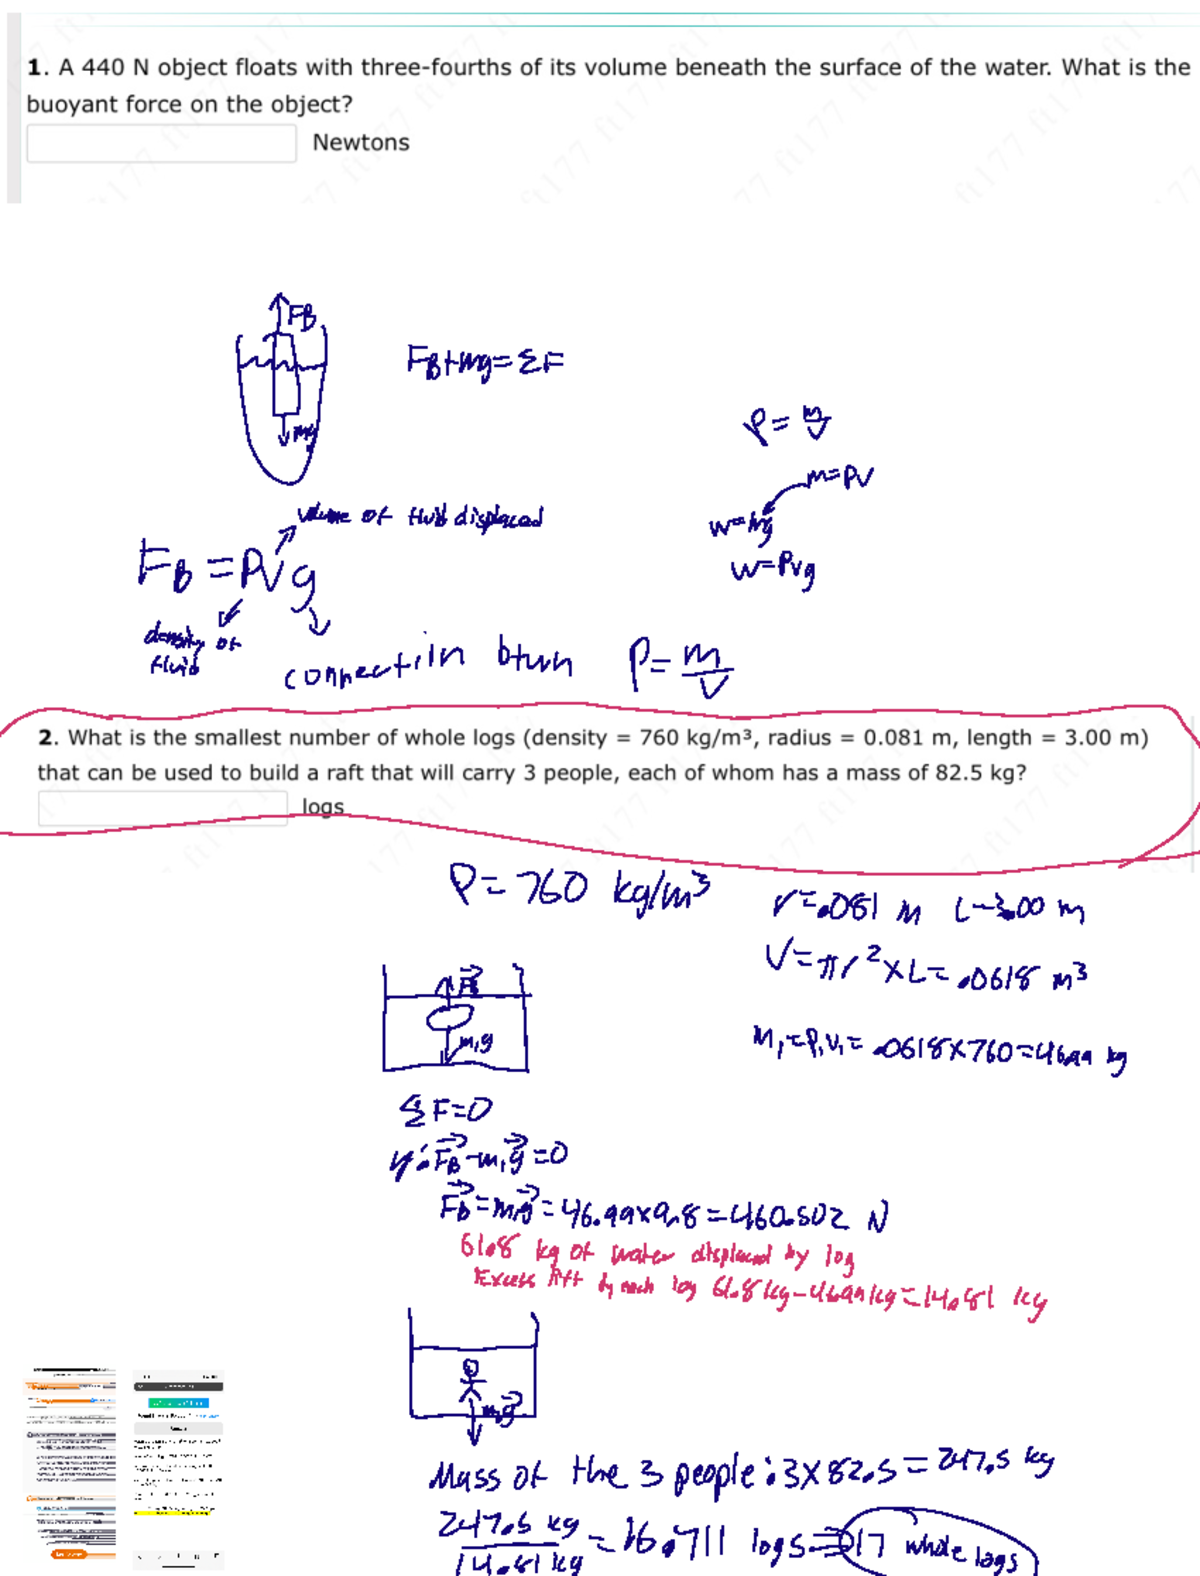 1. A 440 N object floats with three-fourths of its volume beneath the surface of the water. What is the
buoyant force on the object?
Newtons
FB
FB+mg=ΣF
mg
ρ=m/V
m=ρV
w=mg
w=ρvg
volume of fluid displaced
FB=ρVg
density of
fluid
connection btwn ρ=m/V
2. What is the smallest number of whole logs (density = 760 kg/m³, radius = 0.081 m, length = 3.00 m)
that can be used to build a raft that will carry 3 people, each of whom has a mass of 82.5 kg?
logs
ρ=760 kg/m³
r=.081 m L=3.00 m
V=πr²×L=.0618 m³
FB
m₁g
M₁=ρ₁V₁=.0618×760=46.99 kg
ΣF=0
y: FB-m₁g=0
FB=m₁g=46.99×9.8=460.502 N
61.8 kg of water displaced by log
Excess lift by each log 61.8 kg-46.99 kg=14.81 kg
m₂g
Mass of the 3 people: 3×82.5=247.5 kg
247.5 kg/14.81 kg=16.711 logs⇒17 whole logs